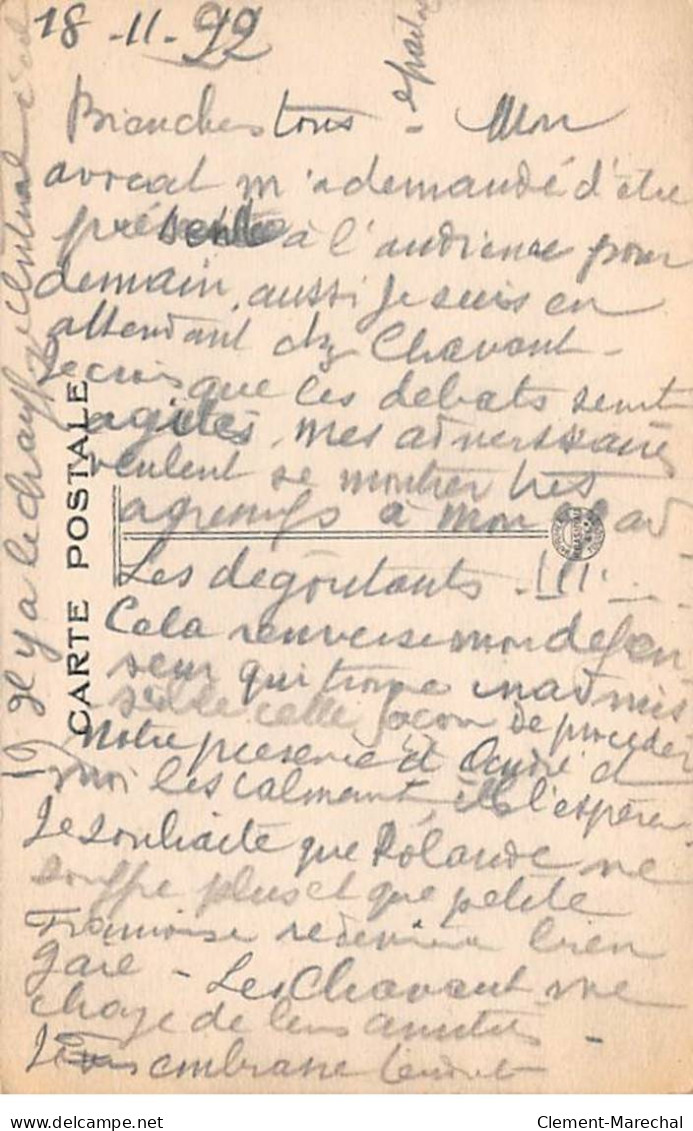 18-11-22
Bien chers tous - Mon
avocat m'a demandé d'être
présente à l'audience pour
demain, aussi je suis en
attendant chz Chavant -
Je crois que les debats seront
agités, mes adverssaires
veulent se montrer très
agressifs à mon
Les dégoûtants - !!!
Cela renverse mon défen-
seur qui trouve inadmis
sible cette façon de proceder
Notre présence et André et
moi les calmant, il l'espère
Je souhaite que Rolande ne
souffre plus et que petite
Françoise redevienne bien
gaie - Les Chavant me
charge de leurs amitiés -
Je vous embrasse tendrt
Il y a le chauffage central
CARTE POSTALE
Clement-Marechal